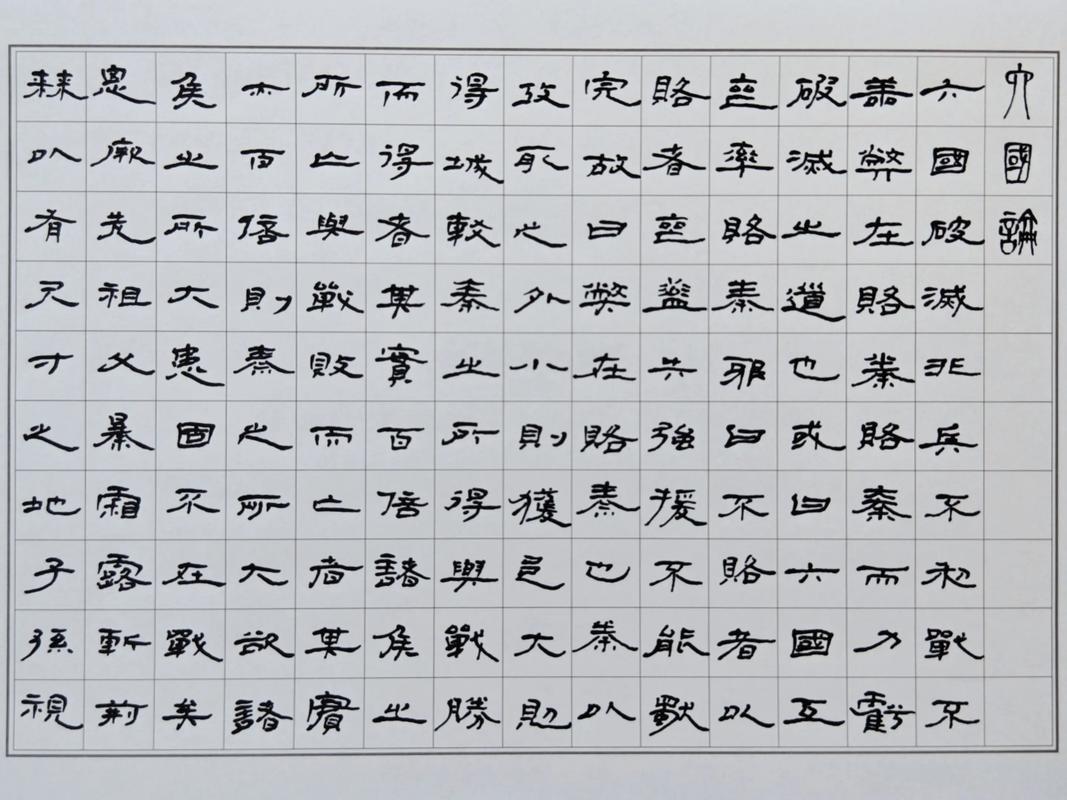 六國論
六國破滅非兵不利戰不
善弊在賂秦賂秦而力虧
破滅之道也或曰六國互
喪率賂秦耶曰不賂者以
賂者喪蓋失強援不能獨
完故曰弊在賂秦也秦以
攻取之外小則獲邑大則
得城較秦之所得與戰勝
而得者其實百倍諸侯之
所亡與戰敗而亡者其實
亦百倍則秦之所大欲諸
侯之所大患固不在戰矣
思厥先祖父暴霜露斬荊
棘以有尺寸之地子孫視